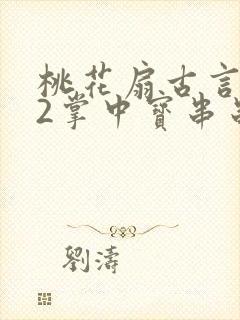 桃花扇古言
2掌中寳串
劉濤